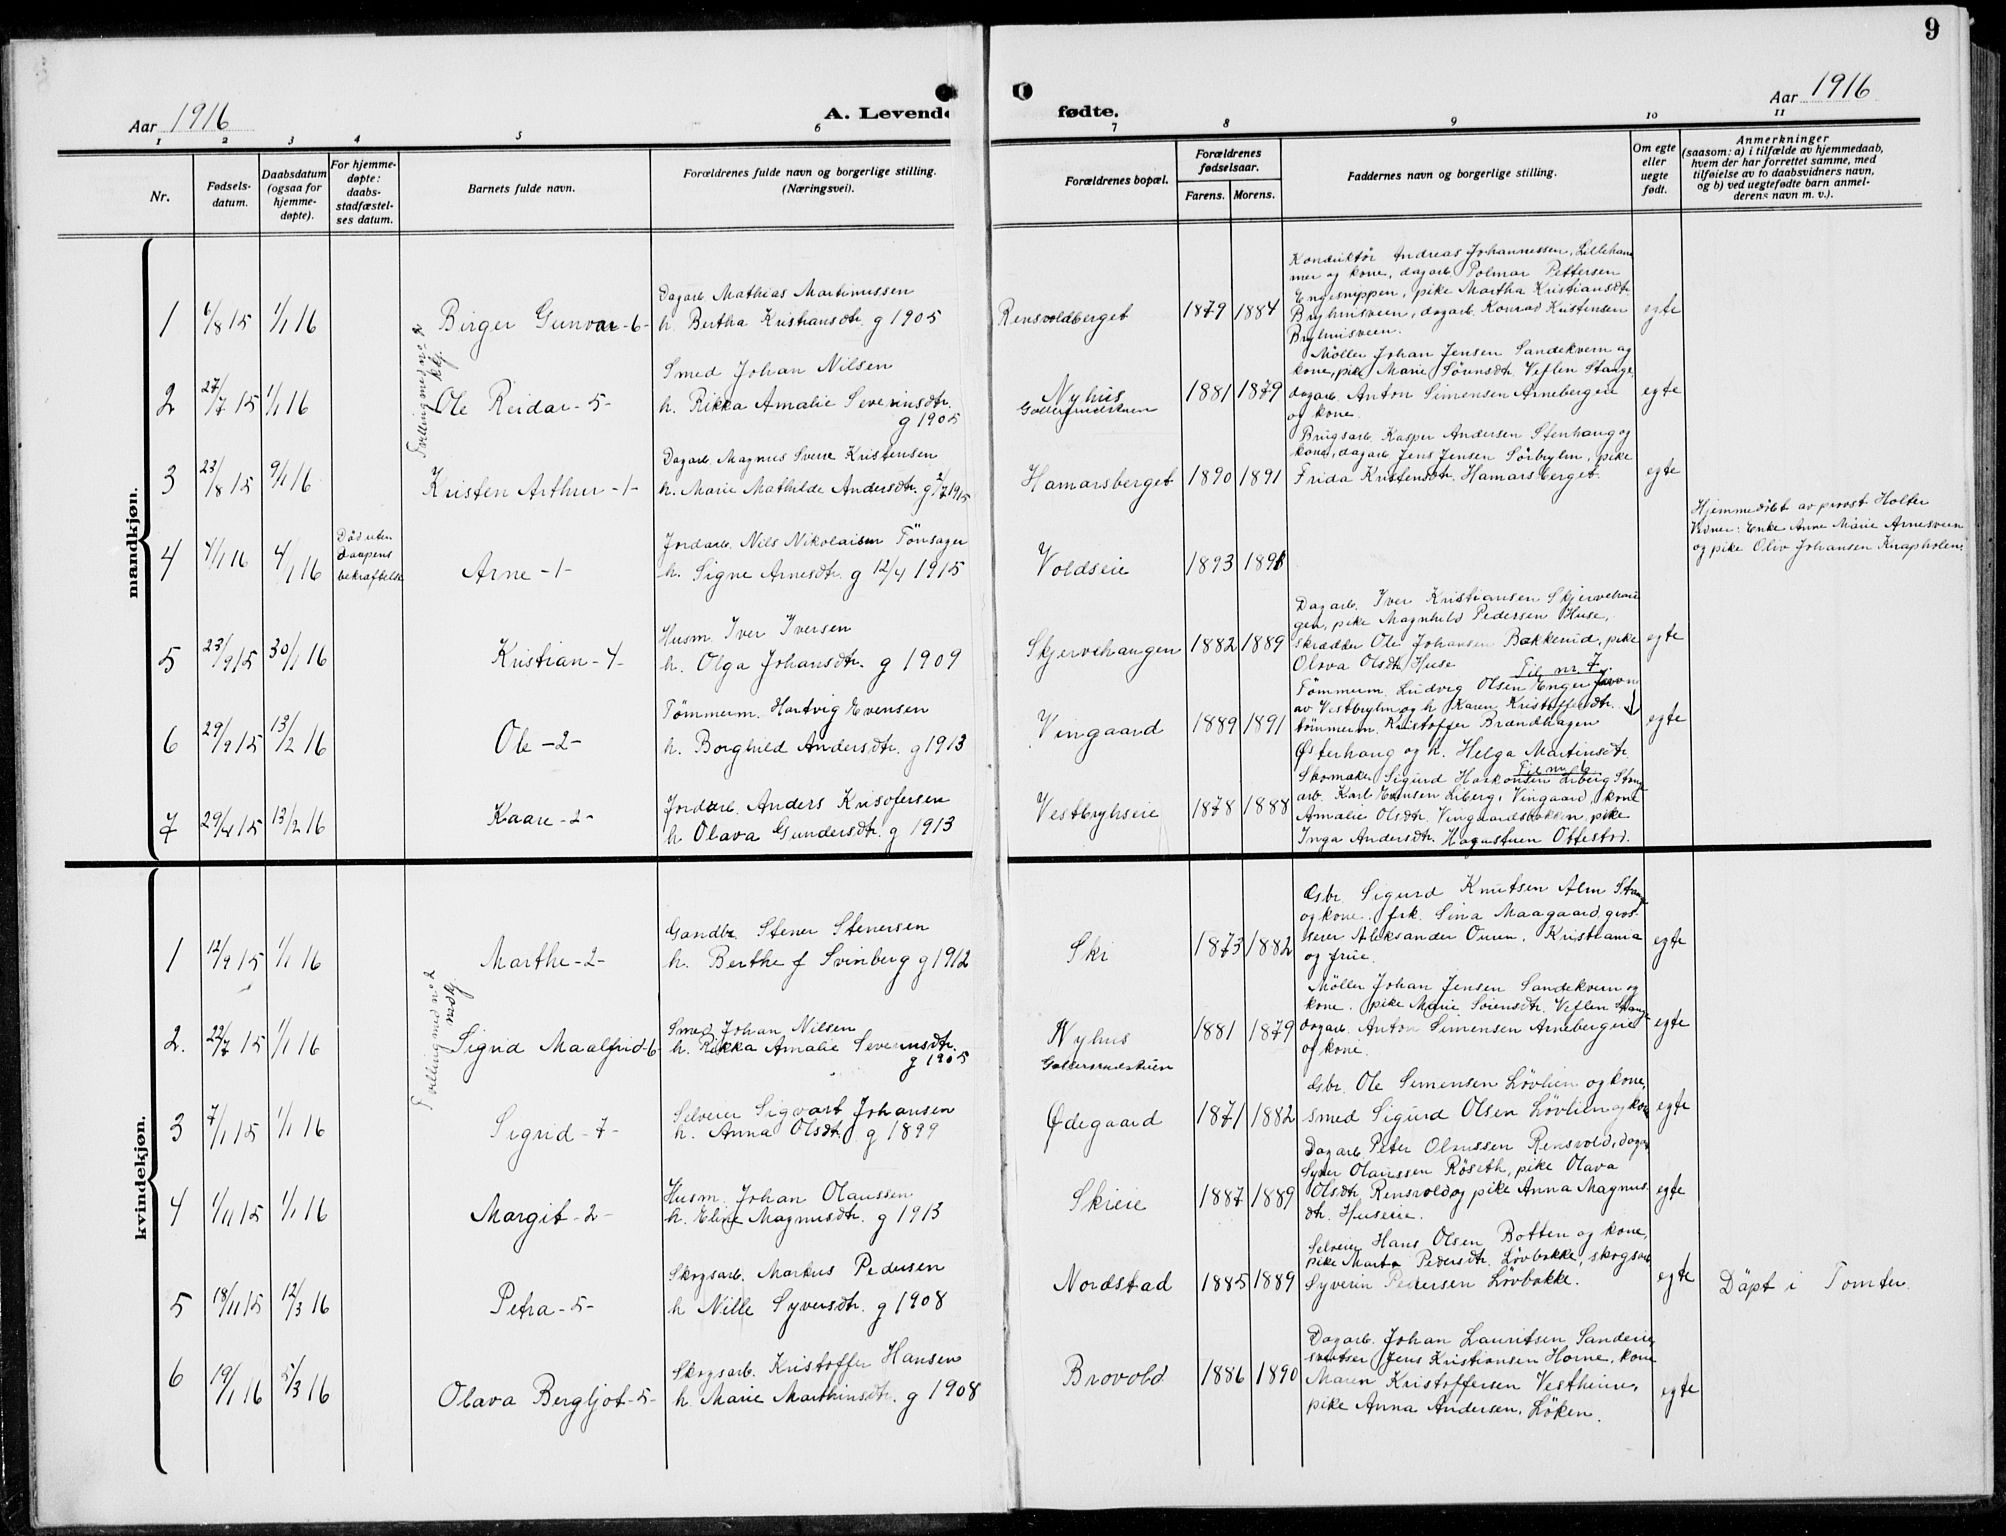 9
Aar 1916
A. Levende
fødte.
Aar 1916
1 2 3 4 5 6 7 8 9 10 11
Nr.
Fødsels-
datum.
Daabsdatum
(ogsaa for
hjemme-
døpte).
For hjemme-
døpte:
daabs-
stadfæstel-
ses datum.
Barnets fulde navn.
Forældrenes fulde navn og borgerlige stilling.
(Næringsvei).
Forældrenes bopæl.
Forældrenes
fødselsaar.
Farens. Morens.
Faddernes navn og borgerlige stilling.
Om egte
eller
uegte
født.
Anmerkninger
(saasom: a) i tilfælde av hjemmedaab,
hvem der har forrettet samme, med
tilføielse av to daabsvidners navn,
og b) ved uegtefødte barn anmel-
derens navn m. v.).
mandkjøn.
1 6/8 15 1/1 16
Birger Gunvar -6-
Dagarb. Mathias Martinussen
h. Bertha Kristiansdtr. g 1905
Rensvoldberget
1879 1884
Konduktør Andreas Johannessen, Lilleham
mer og kone, dagarb. Polmar Pettersen
Engesnippen, pike Martha Kristiansdtr.
Bryhnisveen, dagarb. Konrad Kristensen
Bryhnisveen.
egte
2 27/7 15 1/1 16
Tvilling med no 2
kkj.
Ole Reidar -5-
Smed Johan Nilsen
h. Rikka Amalie Severinsdtr.
g 1905
Nyhus
1881 1879
Møller Johan Jensen Sandekvern og
kone, pike Marie Sørensdtr. Veflen Stange,
dagarb. Anton Simensen Arnebergeie
og kone.
egte
3 23/8 15 9/1 16
Kristen Arthur -1-
Dagarb. Magnus Sverre Kristensen
h. Marie Mathilde Andersdtr. g 2/7 1915
Hamarsberget
1890 1891
Brugsarb. Kasper Andersen Stenhaug og
kone, dagarb. Jens Jensen Sørbryhn, pike
Frida Kristensdtr. Hamarsberget.
egte
4 4/1 16 4/1 16
Död uten
daapens
bekræftelse
Arne -1-
Jordarb. Nils Nikolaisen Tönsager
h. Signe Arnesdtr. g 12/4 1915
Voldseie
1893 1891
Hjemmedöbt av provst Holter
Vidner: Enke Anne Marie Arnesveen
og pike Oliv Johansen Knapholen.
5 23/9 15 30/1 16
Kristian -4-
Husm. Iver Iversen
h. Olga Johansdtr. g 1909
Skjervehangen
1882 1889
Dagarb. Iver Kristiansen Skjervehan
gen, pike Magnhild Pedersen Huse,
skrædder Ole Johansen Bakkerud, pike
Olava Olsdtr. Huse
egte
6 29/9 15 13/2 16
Ole -2-
Tömmerm. Hartvig Evensen
h. Borghild Andersdtr. g 1913
Vingaard
1889 1891
Til nr. 7.
Tömmerm. Ludvig Olsen Enger
av Vestbryhn og h. Karen Kristoffersdtr.
tömmerm. Kristoffer Brændhagen
Østerhaug og h. Helga Martinsdtr.
egte
7 29/4 15 13/2 16
Kaare -2-
Jordarb. Anders Krisofersen
h. Olava Gundersdtr. g 1913
Vestbryhseie
1878 1888
Til nr. 6
Skomaker Sigurd Haakonsen Liberg Stang
arb. Karl Evensen Liberg, Vingaard, kone
Amalie Olsdtr. Vingaardsbakken, pike
Inga Andersdtr. Hagastuen Ottestad.
kvindekjøn.
1 12/9 15 1/1 16
Marthe -2-
Gaardbr. Stener Stenersen
h. Berthe f Svinberg g 1912
Ski
1873 1882
Gsbr. Sigurd Knutsen Alm Stange
og kone, frk. Sina Maagaard, gros-
serer Aleksander Ouren, Kristiania
og frue.
egte
2. 27/7 15 1/1 16
Tvilling med no 2
mdkj.
Sigrid Maalfrid -6-
Smed Johan Nilsen
h. Rikka Amalie Severinsdtr.
g 1905
Nyhus
1881 1879
Møller Johan Jensen Sandekvern og
kone, pike Marie Sörensdtr. Veflen Stange
dagarb. Anton Simensen Arnebergeie
og kone.
egte
3 7/1 15 1/1 16
Sigrid -7-
Selveier Sigvart Johansen
h. Anna Olsdtr. g 1899
Ødegaard
1871 1882
Gsbr. Ole Simensen Lövlien og kone,
smed Sigurd Olsen Lövlien og kone
egte
4 1/11 15 1/1 16
Margit -2-
Husm. Johan Olaussen
h. Eline Magnusdtr. g 1913
Skieie
1887 1889
Dagarb. Peter Olaussen Rensvold, dagar
Syver Olaussen Röseth, pike Olava
Olsdtr. Rensvold og pike Anna Magnus
dtr. Huseeie.
egte
5 18/11 15 12/3 16
Petra -5-
Skogsarb. Markus Pedersen
h Nille Syversdtr. g 1908
Nordstad
1885 1889
Selveier Hans Olsen Botten og kone,
pike Marta Pedersdtr. Lövbakke, skogsarb
Syverin Pedersen Lövbakke.
egte
Döpt i Tomter.
6 19/1 16 5/3 16
Olava Bergljot -5-
Skogsarb. Kristoffer Hansen
h. Marie Marthinsdtr. g 1908
Brovold
1886 1890
Dagarb. Johan Lauritsen Sandeeie,
sveitser Jens Kristiansen Horne, kone
Maren Kristoffersen Vestheim,
pike Anna Andersen, Löken.
egte